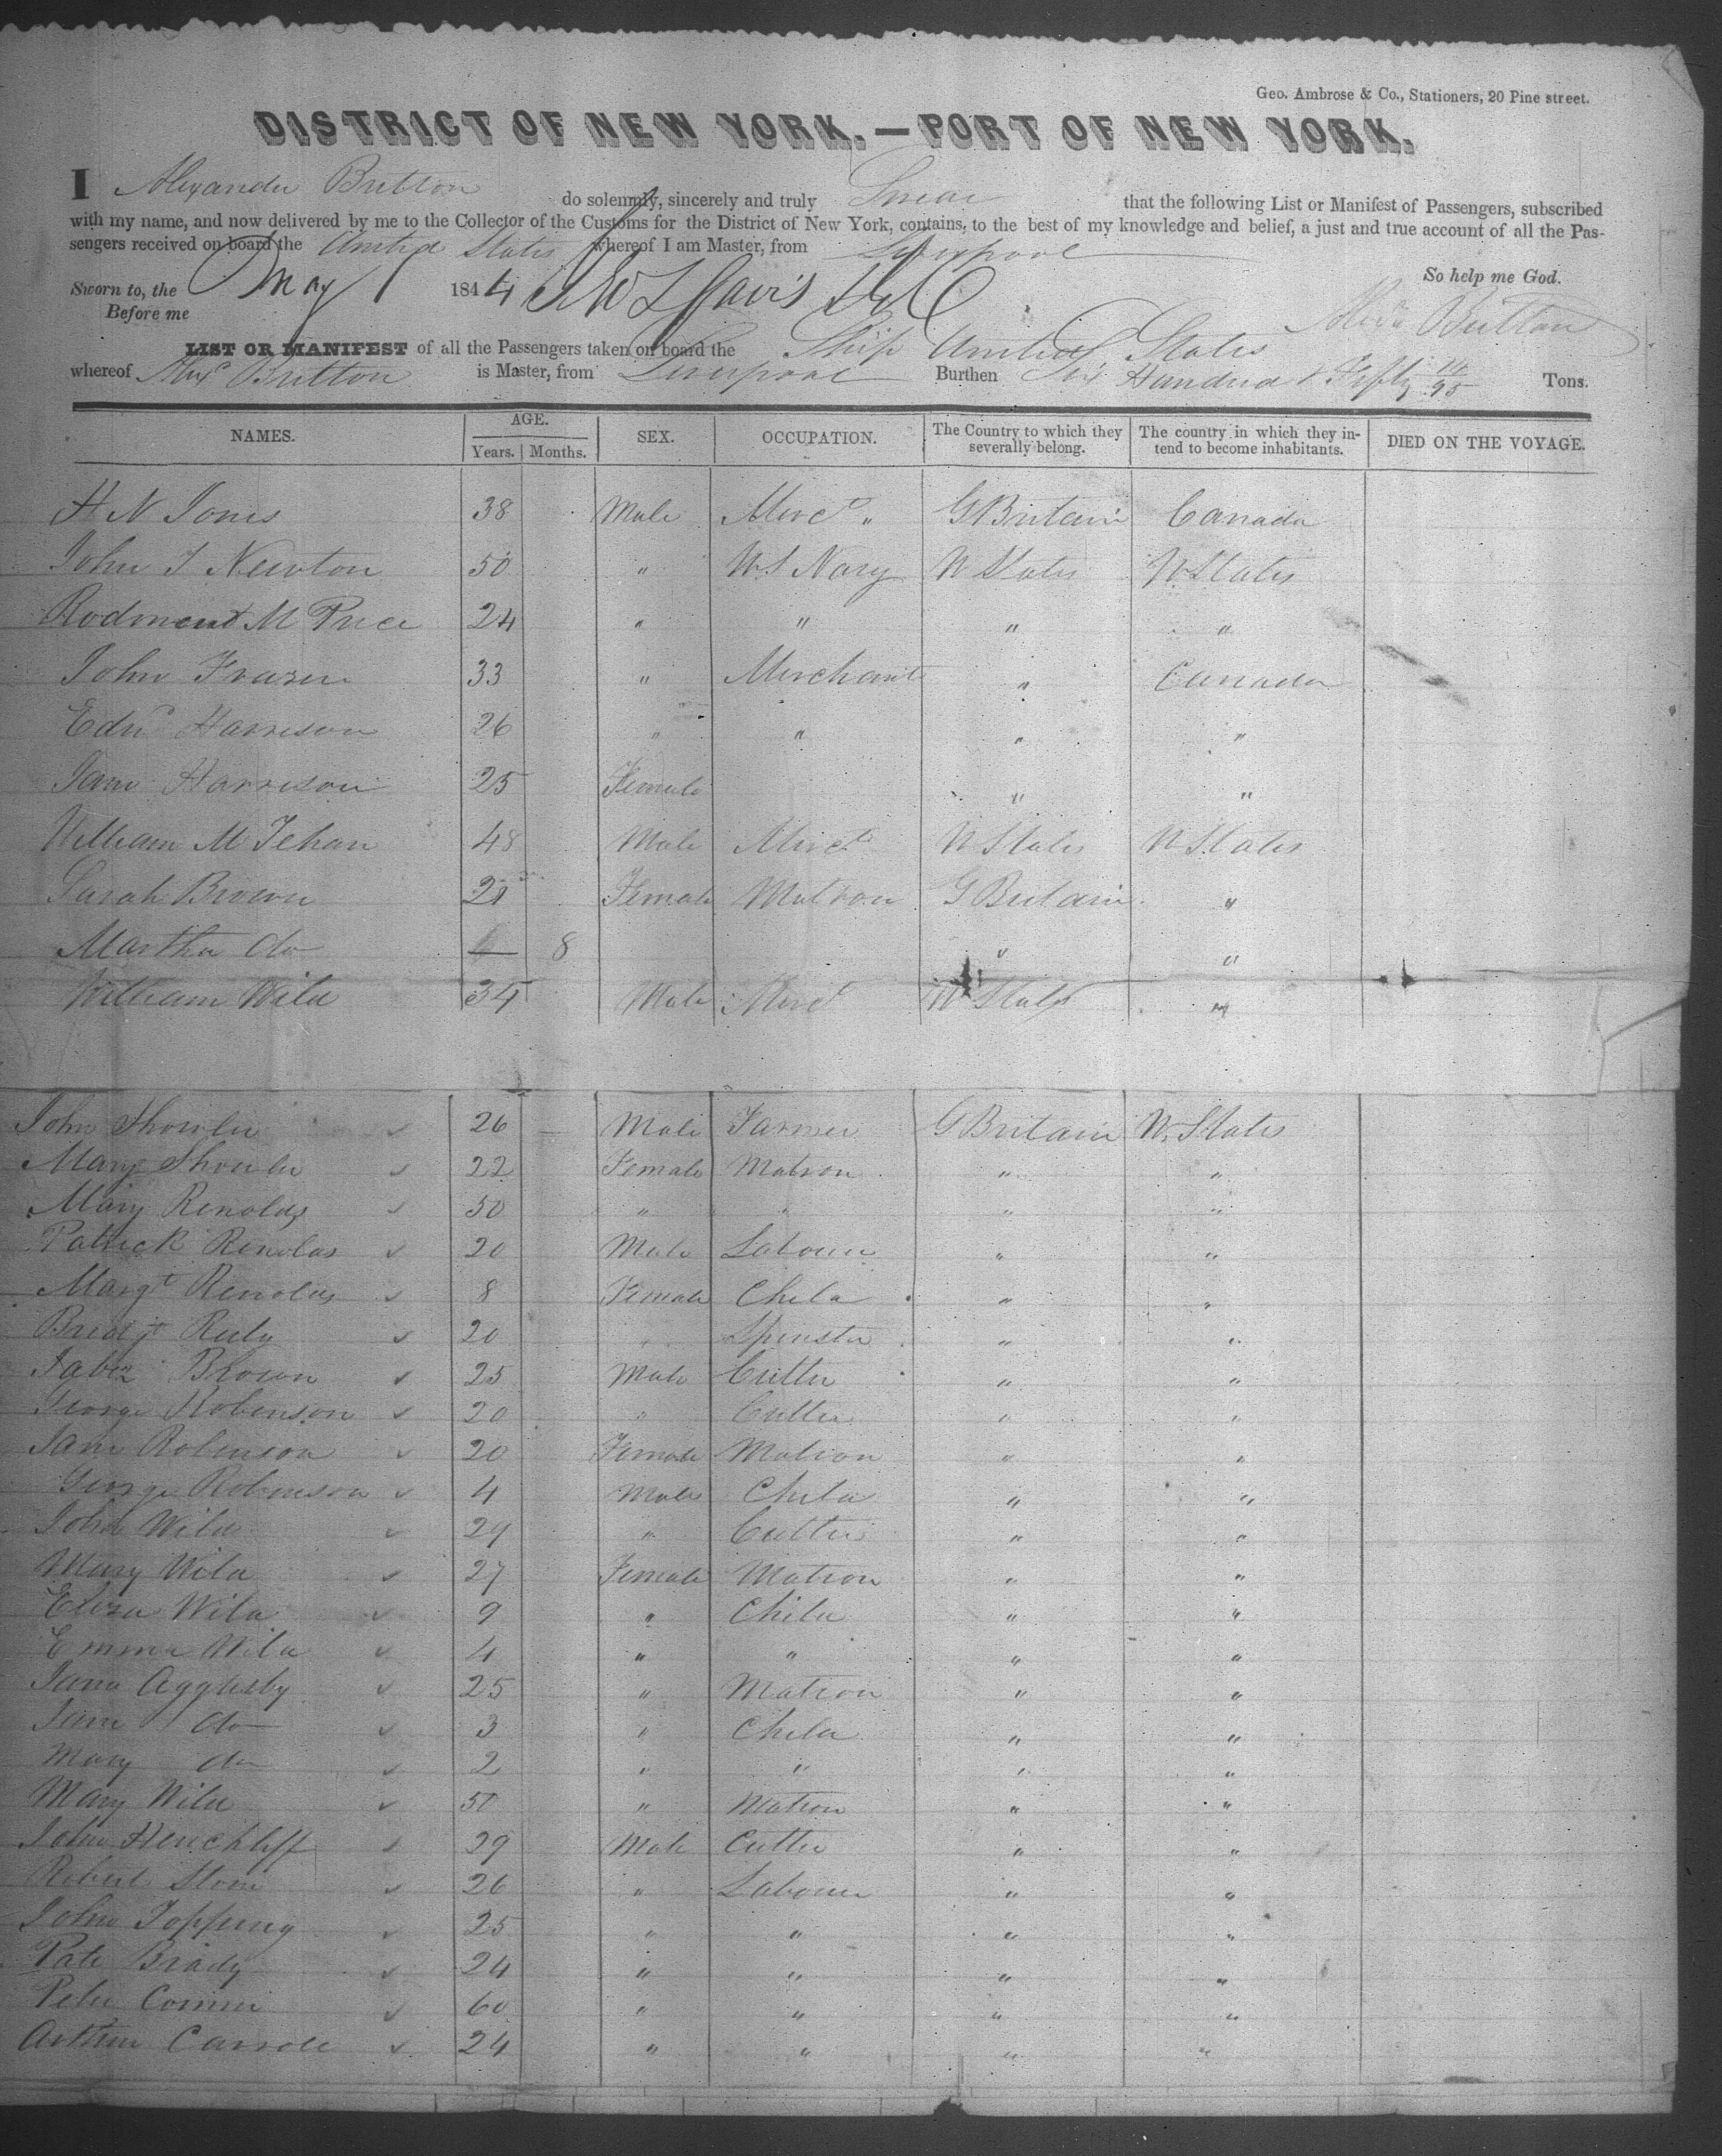 Geo. Ambrose & Co., Stationers, 20 Pine street.
DISTRICT OF NEW YORK.—PORT OF NEW YORK.
I Alexander Britton do solemnly, sincerely and truly Swear that the following List or Manifest of Passengers, subscribed
with my name, and now delivered by me to the Collector of the Customs for the District of New York, contains, to the best of my knowledge and belief, a just and true account of all the Pas-
sengers received on board the United States whereof I am Master, from Liverpool
So help me God.
Sworn to, the May 1844
Before me
Alexr Britton
LIST OR MANIFEST of all the Passengers taken on board the Ship United States
whereof Alexr Britton is Master, from Liverpool Burthen Six Hundred & Fifty 14/95 Tons.
NAMES. AGE. Years. Months. SEX. OCCUPATION. The Country to which they severally belong. The country in which they intend to become inhabitants. DIED ON THE VOYAGE.
H N Jones 38 Male Merct " G Britain Canada
John T Newton 50 " U S Navy U States U States
Rodmond M Price 24 " " " "
John Frazer 33 " Merchant " Canada
Edwd Harrison 26 " " " "
Jane Harrison 25 Female " "
William M Tehan 48 Male Merct U States U States
Sarah Brown 21 Female Matron G Britain "
Martha do — 8 " "
William Wild 34 Male Merct U States "
John Showler 26 — Male Farmer G Britain U. States
Mary Showler 22 Female Matron " "
Mary Renolds 50 " " " "
Patrick Renolds 20 Male Labourer " "
Margt Renolds 8 Female Child " "
Bridgt Rely 20 " Spinster " "
Jabez Brown 25 Male Cutler " "
George Robinson 20 " Cutler " "
Jane Robinson 20 Female Matron " "
George Robinson 4 Male Child " "
John Wild 29 " Cutler " "
Mary Wild 27 Female Matron " "
Eliza Wild 9 " Child " "
Emma Wild 4 " " " "
Jane Agglesby 25 " Matron " "
Jane do 3 " Child " "
Mary do 2 " " " "
Mary Wild 50 " Matron " "
John Henchliff 29 Male Cutler " "
Robert Stone 26 " Labourer " "
John Topping 25 " " " "
Patk Brady 24 " " " "
Peter Conner 60 " " " "
Arthur Carroll 24 " " " "